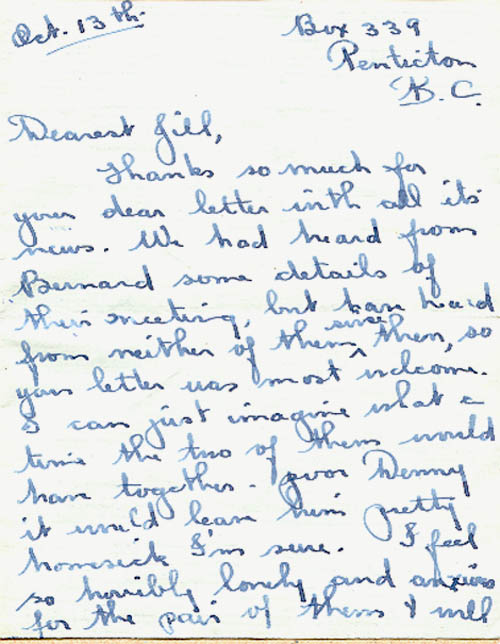 Oct. 13th.
Box 339
Penticton
B.C.
Dearest Jill,
Thanks so much for
your dear letter with all its'
news. We had heard from
Bernard some details of
their meeting, but have heard
from neither of them since then, so
your letter was most welcome.
I can just imagine what a
time the two of them would
have together - poor Denny
it would leave him pretty
homesick I'm sure. I feel
so horribly lonely and anxious
for the pair of them & will